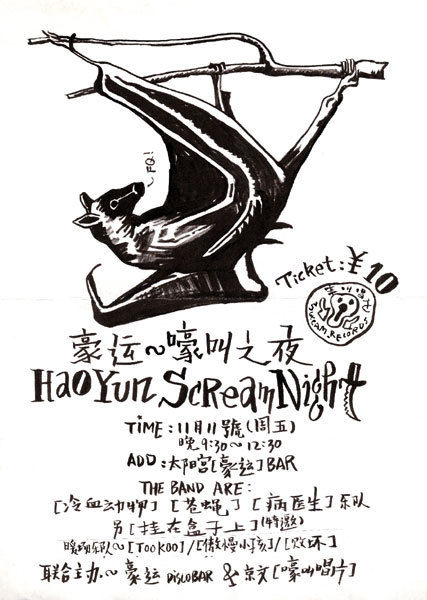 FQ!
Ticket: ¥10
SCREAM RECORDS
豪运~嚎叫之夜
HaoYun Scream Night
TIME: 11月11號(周五)
晚 9:30~12:30
ADD: 太阳宫[豪运]BAR
THE BAND ARE:
[冷血动物] [苍蝇] [病医生]乐队
另[挂在盒子上](特邀)
暖场乐队~[TooKoo]/[傲慢小孩]/[败坏]
联合主办~豪运 DISCOBAR & 京文[嚎叫唱片]